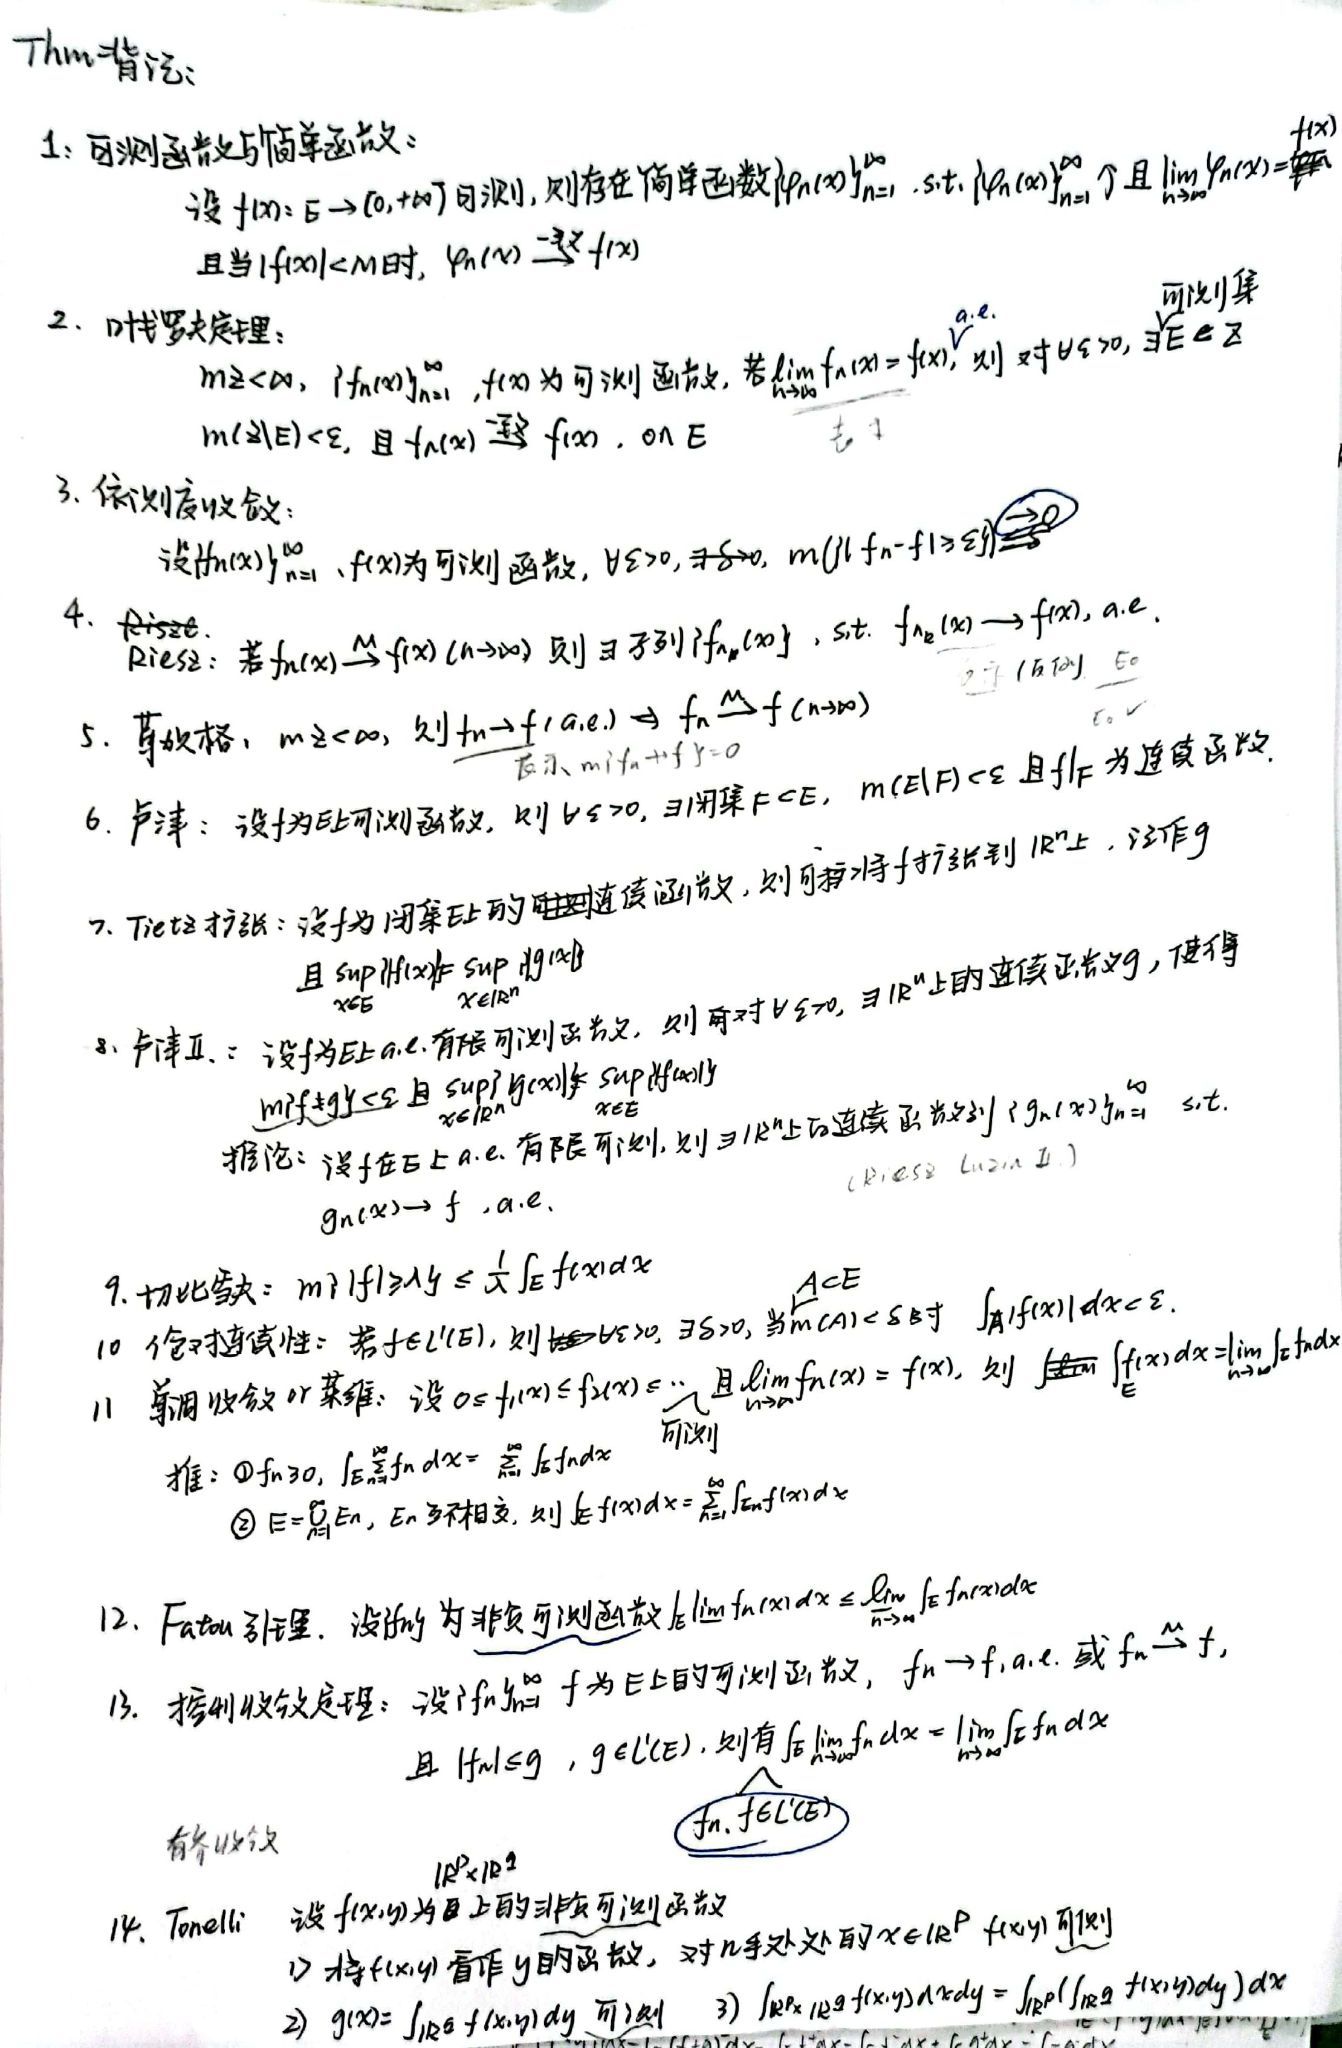 Thm背记:
1: 可测函数与简单函数:
设 f(x): E→[0,+∞]可测, 则存在简单函数{φn(x)}_{n=1}^∞ .s.t. {φn(x)}_{n=1}^∞ ↑ 且 lim_{n→∞} φn(x)=f(x)
且当|f(x)|<M时, φn(x) 一致→ f(x)
2. 叶戈罗夫定理:
mz<∞, {fn(x)}_{n=1}^∞, f(x) 为可测函数, 若 lim_{n→∞} fn(x)=f(x), a.e. 则对∀ε>0, ∃可测集E⊂Z
m(Z\E)<ε, 且 fn(x) 一致→ f(x). on E
3. 依测度收敛:
设{fn(x)}_{n=1}^∞、f(x)为可测函数, ∀ε>0, m({|fn-f|≥ε})→0
4. Riesz: 若fn(x) M→ f(x) (n→∞) 则∃子列{fnk(x)}, s.t. fnk(x)→f(x), a.e.
(反例) E0
E0 ✓
5. mz<∞, 则fn→f(a.e.) ⇒ fn M→ f (n→∞)
表示 m{fn↛f}=0
6. 卢津: 设f为E上可测函数, 则∀ε>0, ∃闭集F⊂E, m(E\F)<ε 且f|F 为连续函数.
7. Tietz扩张: 设f为闭集E上的连续函数, 则可将f扩张到 ℝⁿ上, 记作g
且 sup_{x∈E}{|f(x)|}=sup_{x∈ℝⁿ}{|g(x)|}
8. 卢津II.: 设f为E上a.e.有限可测函数, 则对∀ε>0, ∃ℝⁿ上的连续函数g, 使得
m{f≠g}<ε 且 sup_{x∈ℝⁿ}{|g(x)|}≤sup_{x∈E}{|f(x)|}
推论: 设f在E上a.e.有限可测, 则∃ℝⁿ上的连续函数列{gn(x)}_{n=1}^∞ s.t.
(Riesz Luzin II.)
gn(x)→f, a.e.
9. 切比雪夫: m{|f|≥λ} ≤ 1/λ ∫_E f(x)dx
10 绝对连续性: 若f∈L¹(E), 则∀ε>0, ∃δ>0, 当A⊂E m(A)<δ时 ∫_A|f(x)|dx<ε.
11 单调收敛or莱维: 设0≤f1(x)≤f2(x)≤… 且lim_{n→∞}fn(x)=f(x), 则 ∫_E f(x)dx=lim_{n→∞}∫_E fndx
可测
推: ①fn≥0, ∫_E∑_{n=1}^∞ fn dx=∑_{n=1}^∞ ∫_E fndx
② E=⋃_{n=1}^∞ En, En 互不相交, 则∫_E f(x)dx=∑_{n=1}^∞ ∫_{En}f(x)dx
12. Fatou引理. 设{fn}为非负可测函数 ∫_E lim fn(x)dx ≤ lim_{n→∞} ∫_E fn(x)dx
13. 控制收敛定理: 设{fn}_{n=1}^∞ f为E上的可测函数, fn→f, a.e. 或 fn M→ f,
且 |fn|≤g, g∈L¹(E). 则有∫_E lim_{n→∞} fn dx = lim_{n→∞} ∫_E fn dx
fn, f∈L¹(E)
有界收敛
14. Tonelli 设f(x,y)为ℝᵖ×ℝ^q上的非负可测函数
1) 将f(x,y)看作y的函数, 对几乎处处的x∈ℝᵖ f(x,y)可测
2) g(x)=∫_{ℝ^q} f(x,y)dy 可测 3) ∫_{ℝᵖ×ℝ^q} f(x,y)dxdy=∫_{ℝᵖ}(∫_{ℝ^q} f(x,y)dy)dx